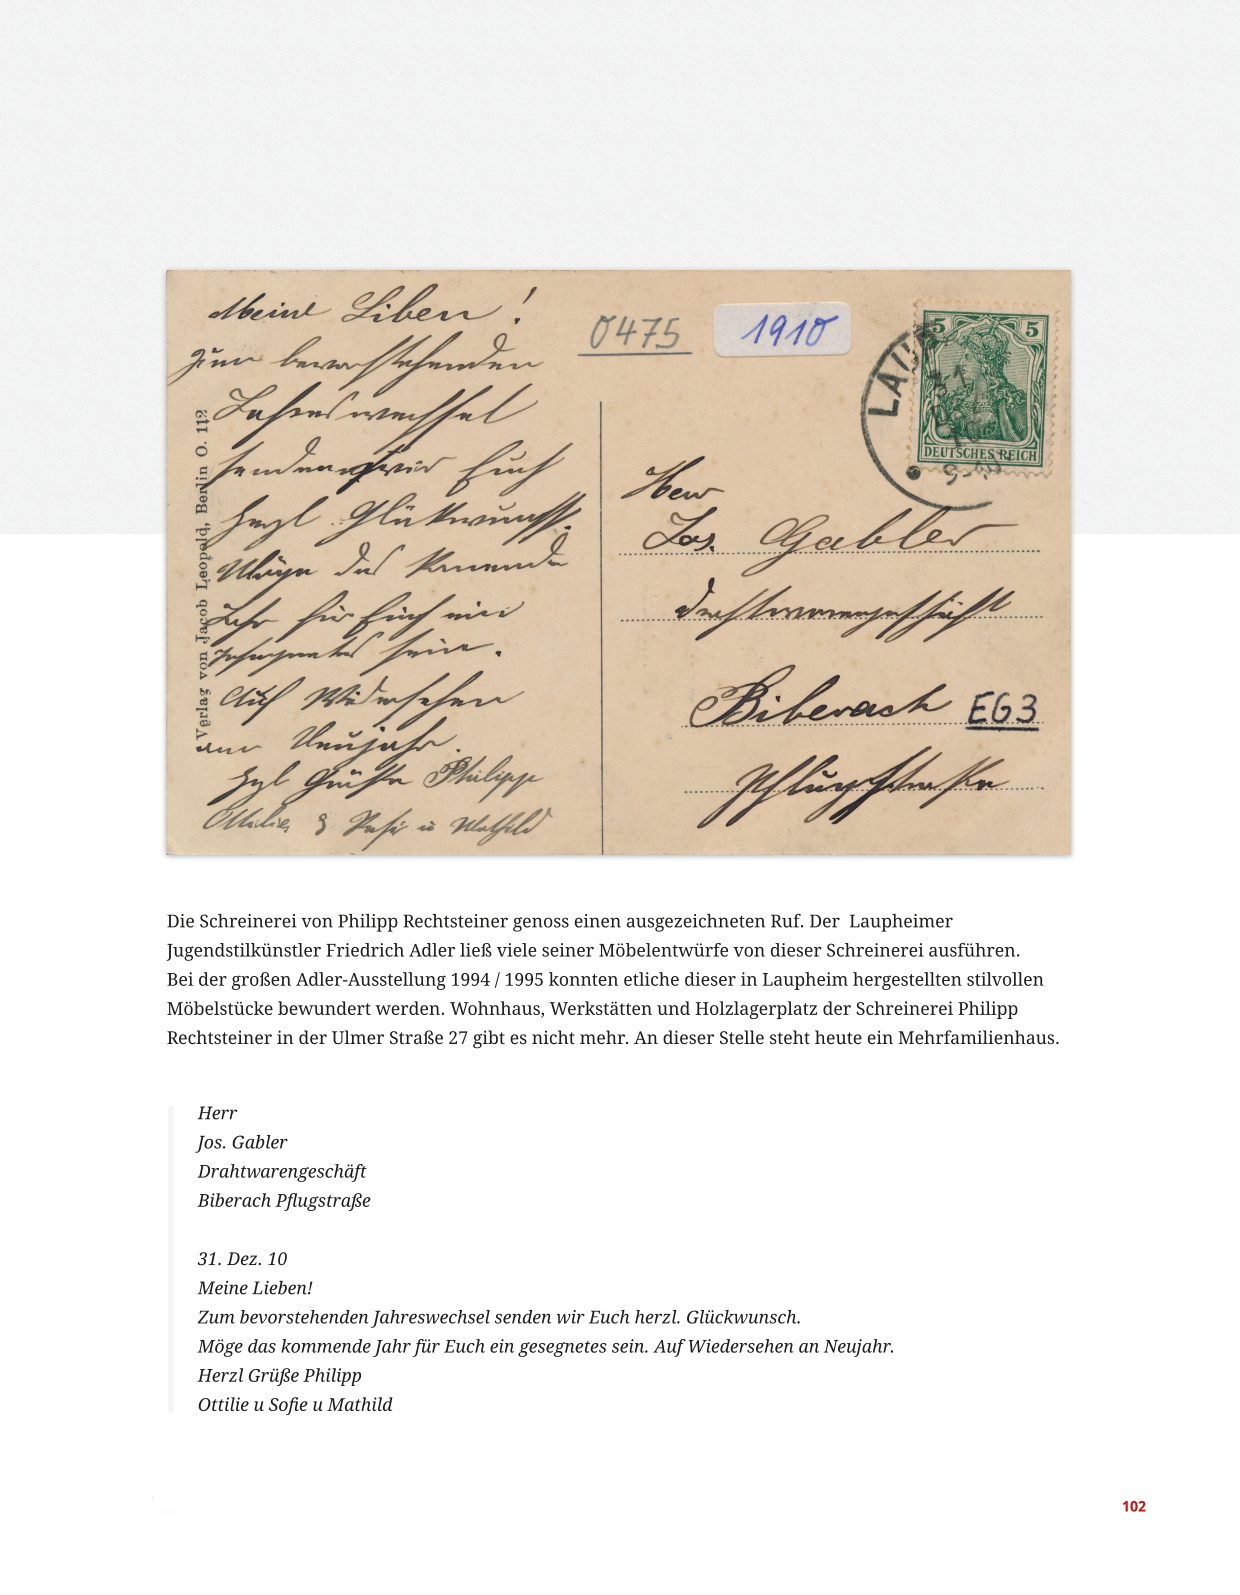 Meine Lieben!
zum bevorstehenden
Jahreswechsel
senden wir Euch
herzl. Glückwunsch.
Möge das kommende
Jahr für Euch ein
gesegnetes sein.
Auf Widersehen
am Neujahr.
Hzl Grüße Philipp
Ottilie & Sofie u Mathild
Verlag von Jacob Leopold, Berlin O. 112
0475
1910
5 5
DEUTSCHES REICH
LAUP
31
10
Herr
Jos. Gabler
Drahtwarengeschäft
Biberach EG3
Pflugstraße
Die Schreinerei von Philipp Rechtsteiner genoss einen ausgezeichneten Ruf. Der Laupheimer
Jugendstilkünstler Friedrich Adler ließ viele seiner Möbelentwürfe von dieser Schreinerei ausführen.
Bei der großen Adler-Ausstellung 1994 / 1995 konnten etliche dieser in Laupheim hergestellten stilvollen
Möbelstücke bewundert werden. Wohnhaus, Werkstätten und Holzlagerplatz der Schreinerei Philipp
Rechtsteiner in der Ulmer Straße 27 gibt es nicht mehr. An dieser Stelle steht heute ein Mehrfamilienhaus.
Herr
Jos. Gabler
Drahtwarengeschäft
Biberach Pflugstraße
31. Dez. 10
Meine Lieben!
Zum bevorstehenden Jahreswechsel senden wir Euch herzl. Glückwunsch.
Möge das kommende Jahr für Euch ein gesegnetes sein. Auf Wiedersehen an Neujahr.
Herzl Grüße Philipp
Ottilie u Sofie u Mathild
102